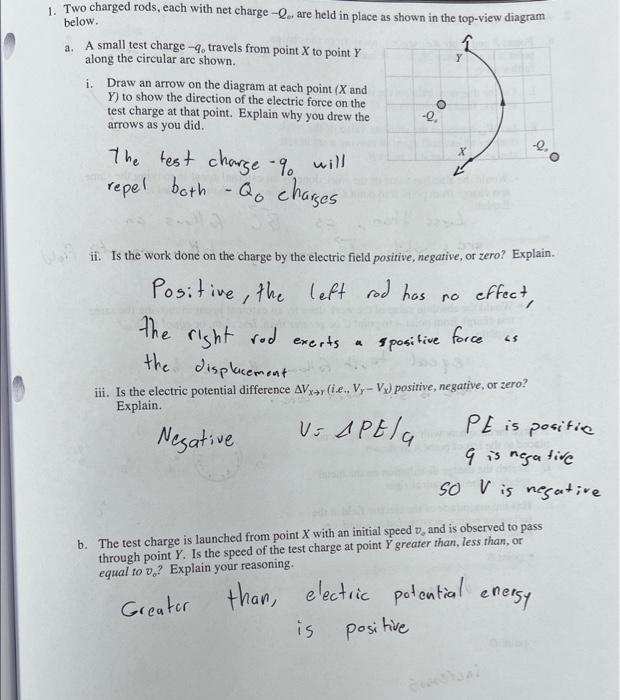 1. Two charged rods, each with net charge -Qₒ, are held in place as shown in the top-view diagram
below.
a. A small test charge -qₒ travels from point X to point Y
along the circular arc shown.
i. Draw an arrow on the diagram at each point (X and
Y) to show the direction of the electric force on the
test charge at that point. Explain why you drew the
arrows as you did.
Y
-Qₒ
X
-Qₒ
The test charge -q₀ will
repel both - Q₀ charges
ii. Is the work done on the charge by the electric field positive, negative, or zero? Explain.
Positive, the left rod has no effect,
the right rod exerts a positive force as
the displacement
iii. Is the electric potential difference ΔVx→Y (i.e., VY – VX) positive, negative, or zero?
Explain.
Negative
V= ΔPE/q
PE is positie
q is negative
so V is negative
b. The test charge is launched from point X with an initial speed vₒ and is observed to pass
through point Y. Is the speed of the test charge at point Y greater than, less than, or
equal to vₒ? Explain your reasoning.
Greater than, electric potential energy
is positive